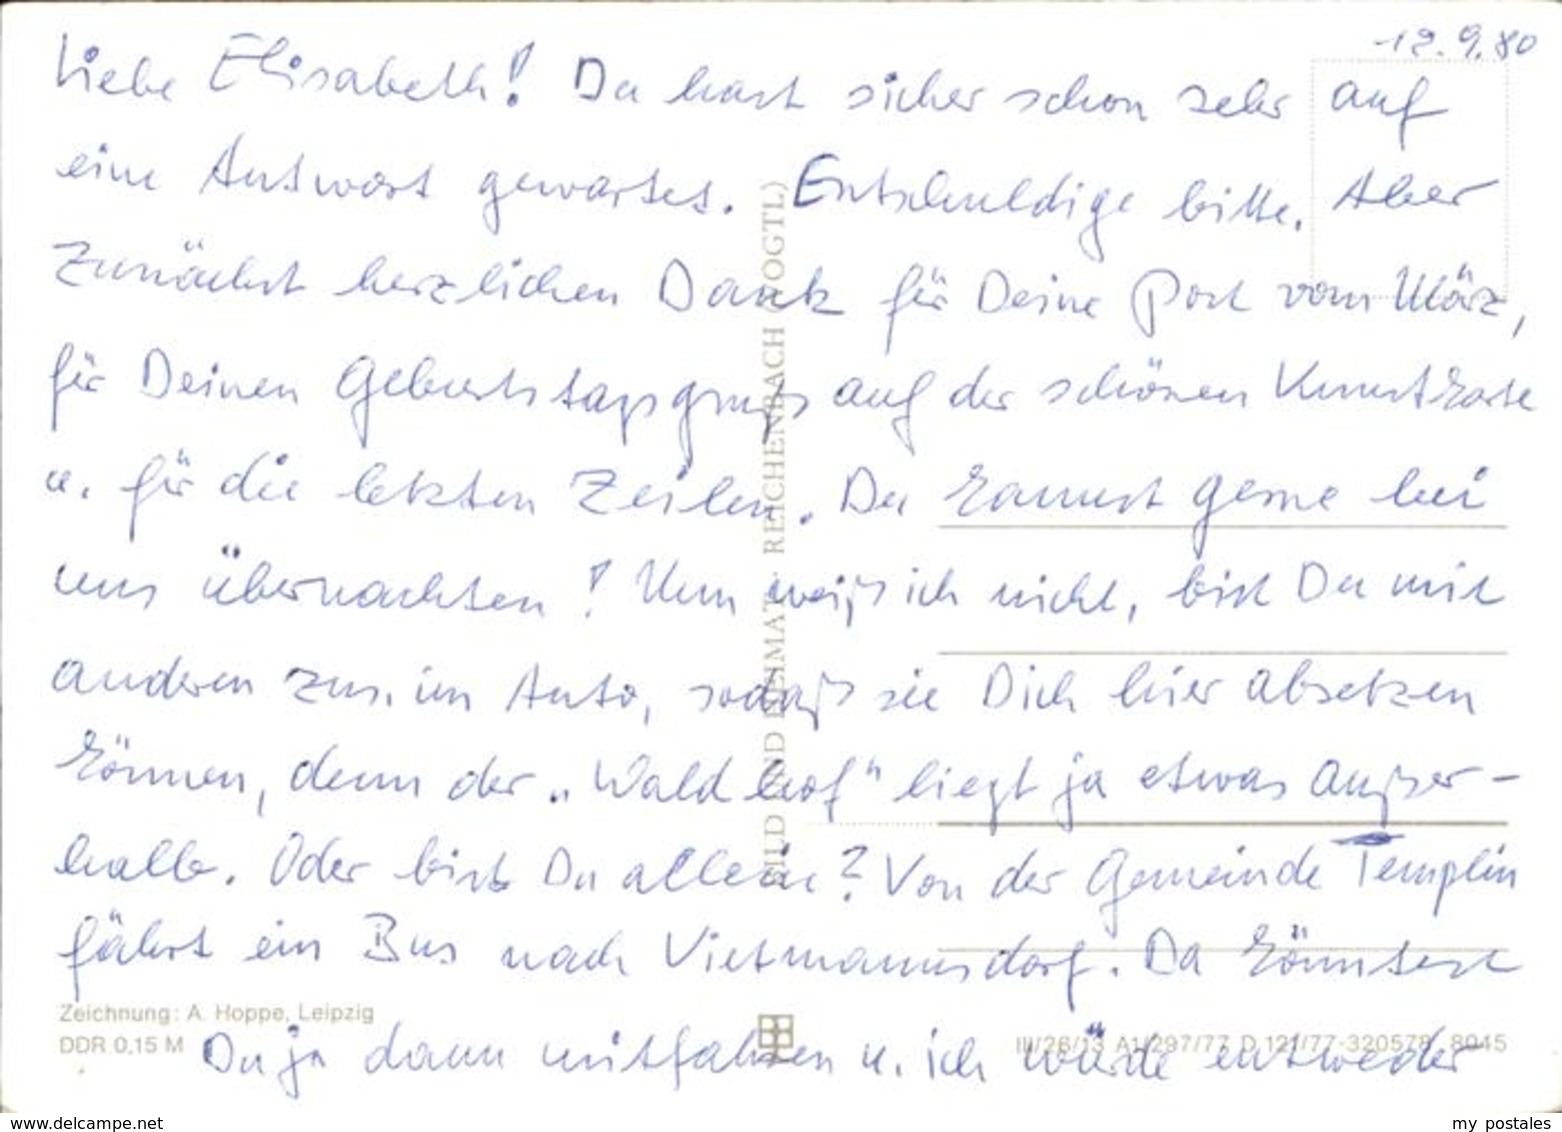 12.9.80
Liebe Elisabeth! Du hast sicher schon sehr auf
eine Antwort gewartet. Entschuldige bitte. Aber
Zunächst herzlichen Dank für Deine Post vom März,
für Deinen Geburtstagsgruß auf der schönen Kunstkarte
u. für die letzten Zeilen. Du kannst gerne bei
uns übernachten! Nun weiß ich nicht, bist Du mit
anderen zus. im Auto, sodaß sie Dich hier absetzen
können, denn der „Waldhof“ liegt ja etwas außer-
halb. Oder bist Du allein? Von der Gemeinde Templin
fährt ein Bus nach Vietmannsdorf. Da könntest
Du ja dann mitfahren u. ich würde entweder
BILD UND HEIMAT REICHENBACH (VOGTL)
Zeichnung: A. Hoppe, Leipzig
DDR 0,15 M
III/26/13 A1/297/77 D 121/77-320578 8045
www.delcampe.net
my_postales